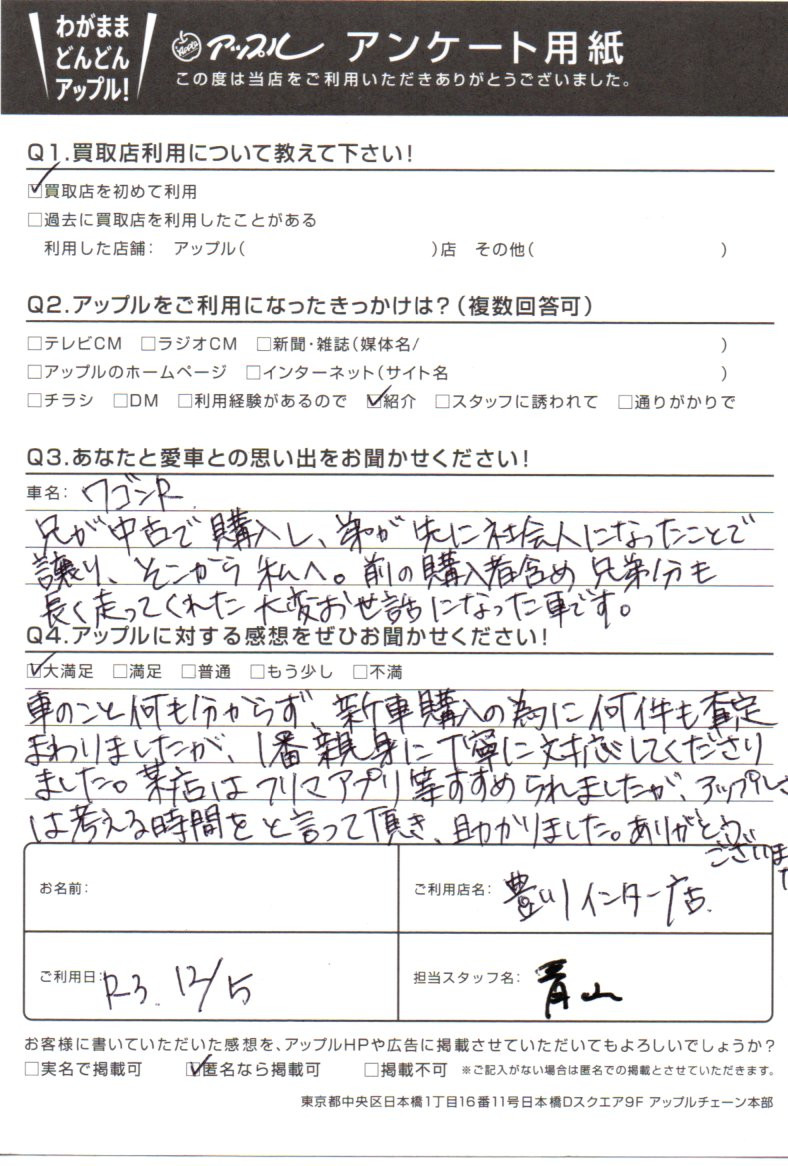 わがまま
どんどん
アップル!
アップル アンケート用紙
この度は当店をご利用いただきありがとうございました。
Q1.買取店利用について教えて下さい!
☑買取店を初めて利用
□過去に買取店を利用したことがある
利用した店舗: アップル( )店 その他( )
Q2.アップルをご利用になったきっかけは?(複数回答可)
□テレビCM □ラジオCM □新聞・雑誌(媒体名/ )
□アップルのホームページ □インターネット(サイト名 )
□チラシ □DM □利用経験があるので ☑紹介 □スタッフに誘われて □通りがかりで
Q3.あなたと愛車との思い出をお聞かせください!
車名: ワゴンR
兄が中古で購入し、弟が先に社会人になったことで
譲り、そこから私へ。前の購入者含め兄弟分も
長く走ってくれた大変お世話になった車です。
Q4.アップルに対する感想をぜひお聞かせください!
☑大満足 □満足 □普通 □もう少し □不満
車のこと何も分からず、新車購入の為に何件も査定
まわりましたが、1番親身に丁寧に対応してくださり
ました。某店はフリマアプリ等すすめられましたが、アップルさ
は考える時間をと言って頂き、助かりました。ありがとう
ございまた
お名前:
ご利用店名: 豊川インター店
ご利用日: R3. 12/5
担当スタッフ名: 青山
お客様に書いていただいた感想を、アップルHPや広告に掲載させていただいてもよろしいでしょうか?
□実名で掲載可 ☑匿名なら掲載可 □掲載不可 ※ご記入がない場合は匿名での掲載とさせていただきます。
東京都中央区日本橋1丁目16番11号日本橋Dスクエア9F アップルチェーン本部